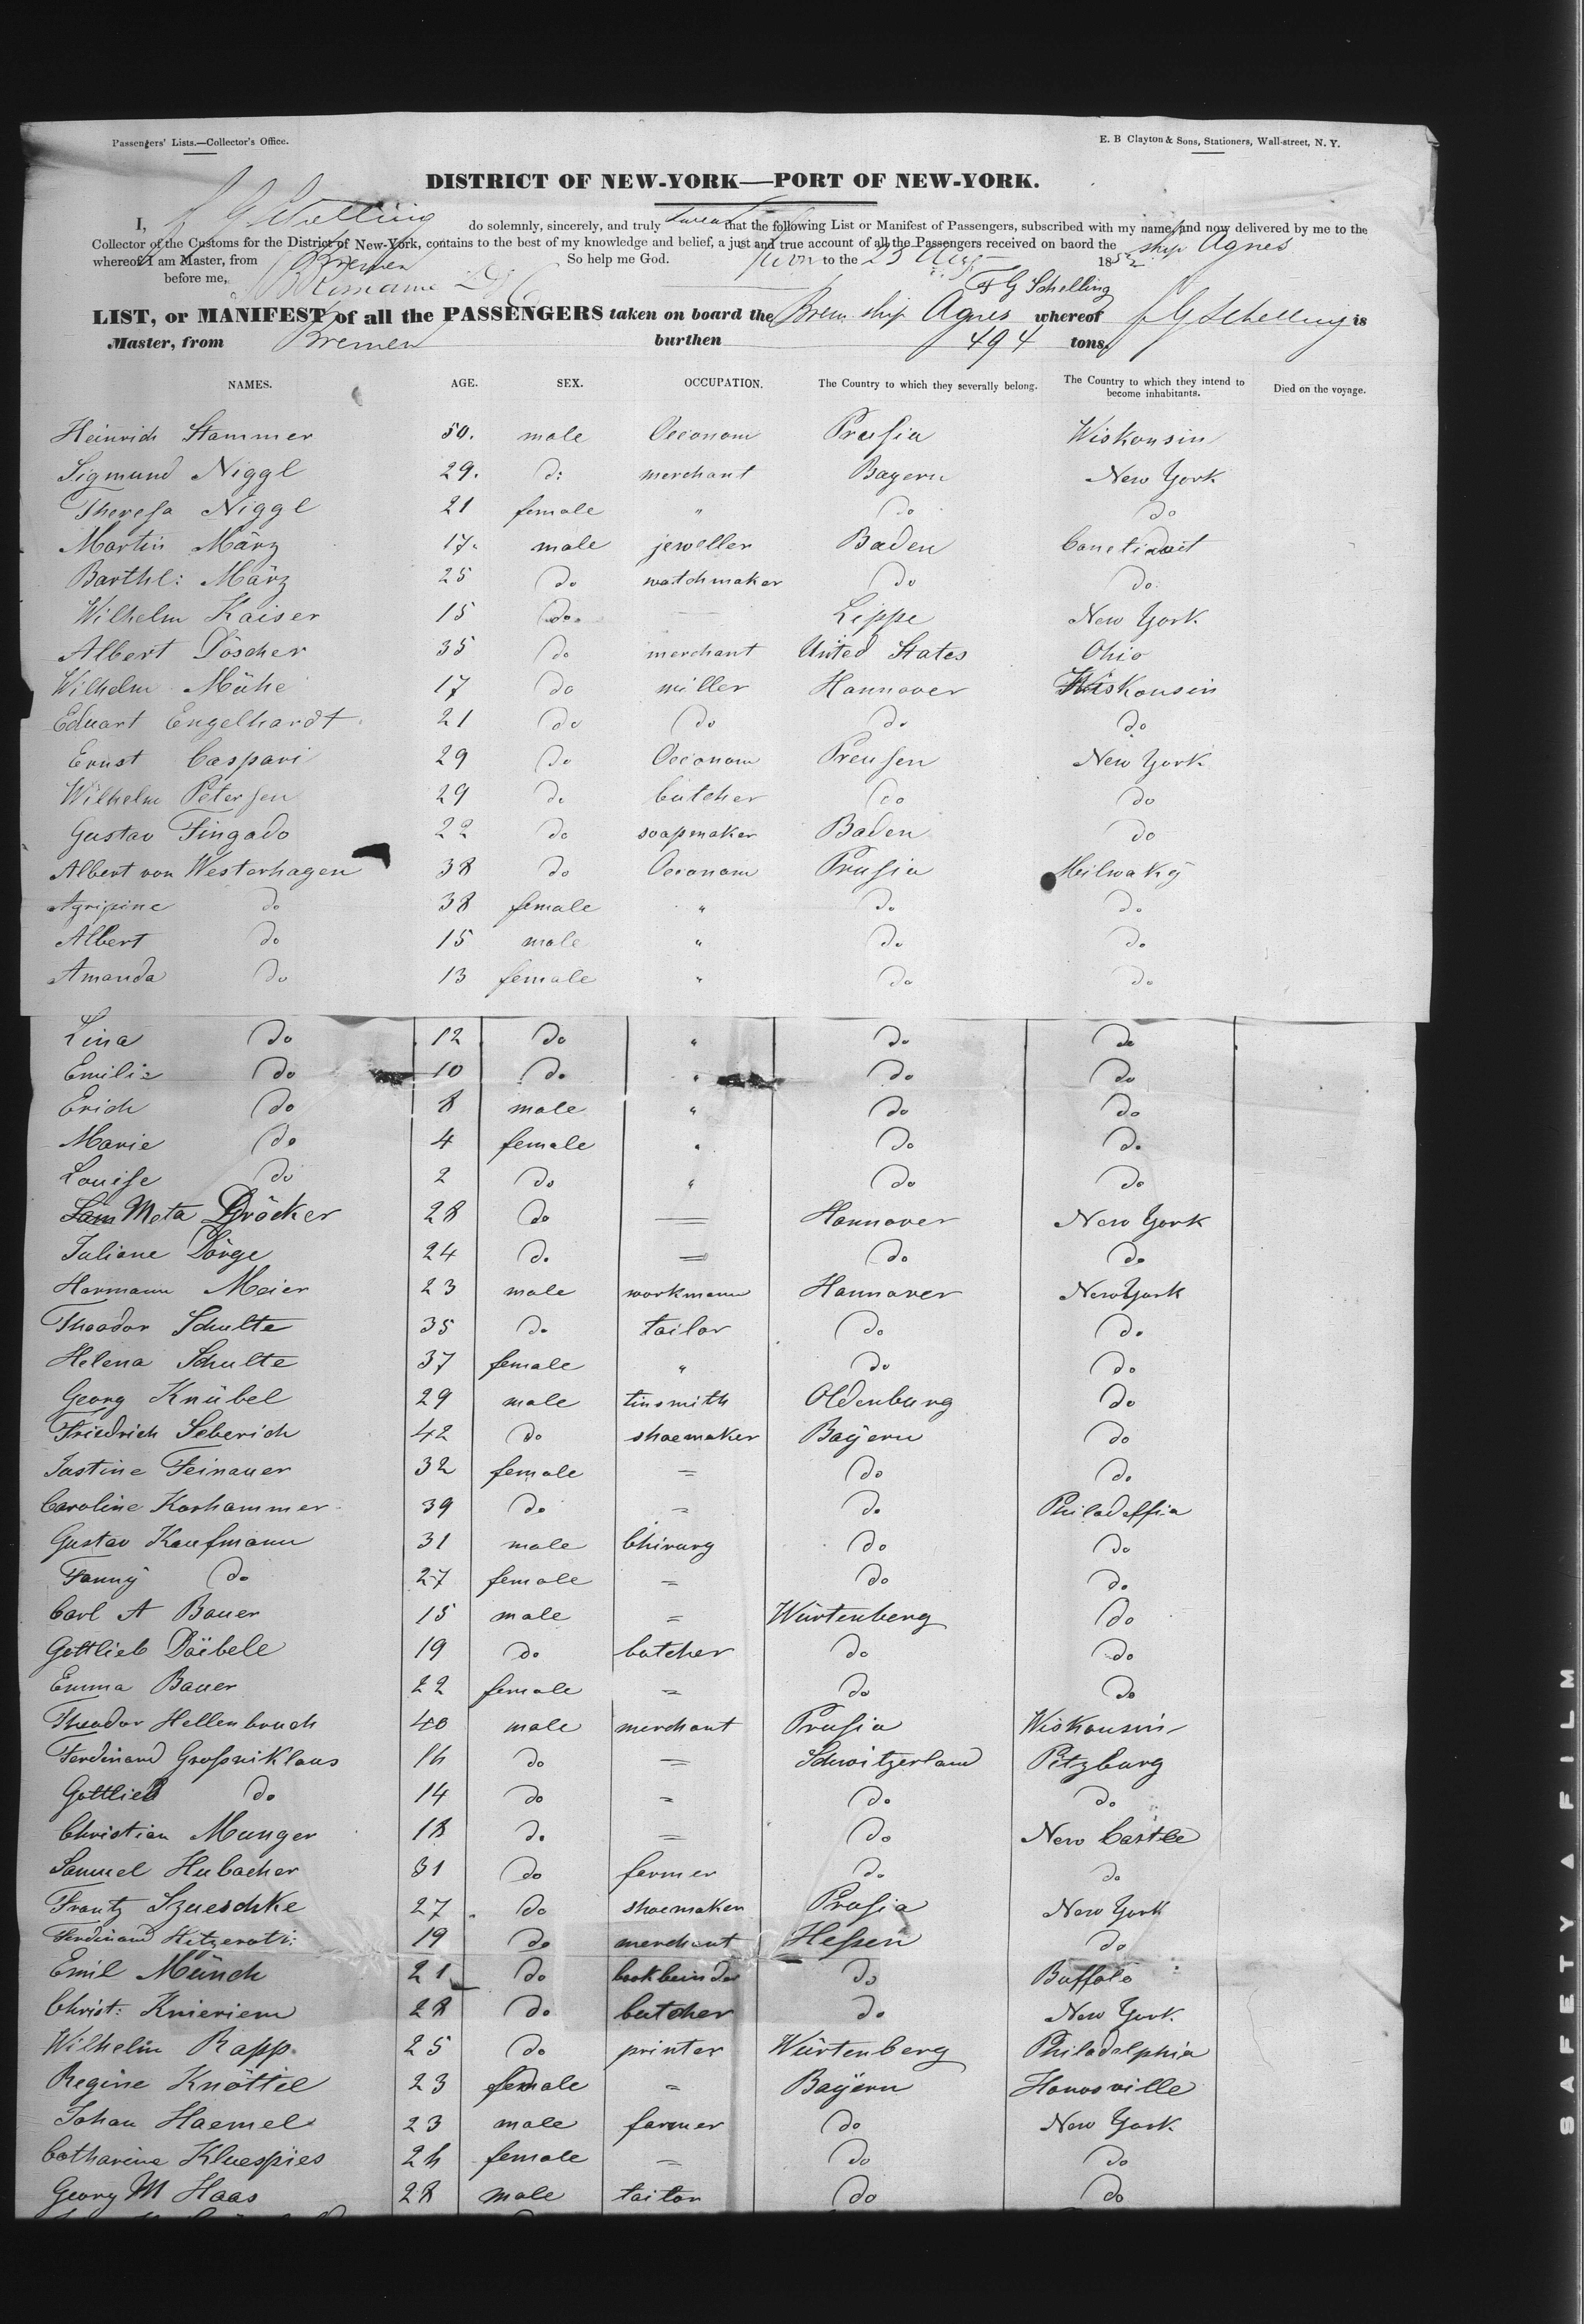 Passengers' Lists.—Collector's Office.
E. B Clayton & Sons, Stationers, Wall-street, N. Y.
DISTRICT OF NEW-YORK—PORT OF NEW-YORK.
I, J G Schelling do solemnly, sincerely, and truly swear that the following List or Manifest of Passengers, subscribed with my name, and now delivered by me to the
Collector of the Customs for the District of New-York, contains to the best of my knowledge and belief, a just and true account of all the Passengers received on baord the ship Agnes
whereof I am Master, from Bremen So help me God. to the 23 Aug 1852
before me,
G Schelling
LIST, or MANIFEST of all the PASSENGERS taken on board the Brem ship Agnes whereof J G Schelling is
Master, from Bremen burthen 494 tons.
NAMES. AGE. SEX. OCCUPATION. The Country to which they severally belong. The Country to which they intend to become inhabitants. Died on the voyage.
Heinrich Stammer 50. male Oeconom Prusia Wiskonsin
Sigmund Niggl 29. do merchant Bayern New York
Theresa Niggl 21 female " do do
Martin März 17. male jeweller Baden Conetiduit
Barthl: März 25 do watchmaker do do
Wilhelm Kaiser 15 do. — Lippe New York
Albert Döscher 35 do merchant United States Ohio
Wilhelm Mühe 17 do miller Hannover Wiskonsin
Eduart Engelhardt 21 do do do do
Ernst Caspari 29 do Oeconom Preusen New York
Wilhelm Petersen 29 do butcher do do
Gustav Fingado 22 do soapmaker Baden do
Albert von Westerhagen 38 do Oeconom Prusia Meilwaky
Agripine do 38 female " do do
Albert do 15 male " do do
Amanda do 13 female " do do
Lina do 12 do " do do
Emilie do 10 do " do do
Erich do 8 male " do do
Marie do 4 female " do do
Louise do 2 do " do do
Meta Dröcker 28 do — Hannover New York
Juliane Dörge 24 do — do do
Hermann Meier 23 male workmann Hannover New York
Theodor Schulte 35 do tailor do do
Helena Schulte 37 female " do do
Georg Knübel 29 male tinsmith Oldenburg do
Friedrich Seberich 42 do shoemaker Bayern do
Justine Feinauer 32 female = do do
Caroline Korhammer 39 do = do Philadelfia
Gustav Kaufmann 31 male Chirurg do do
Fanny do 27 female = do do
Carl A Bauer 15 male = Würtenberg do
Gottlieb Däibele 19 do butcher do do
Emma Bauer 22 female = do do
Theodor Hellenbruch 40 male merchant Prusia Wiskonsin
Ferdinand Grossniklaus 16 do = Schwitzerland Pitzburg
Gottlieb do 14 do = do do
Christian Munger 18 do = do New Castle
Samuel Hubacher 31 do farmer do do
Frantz Szueschke 27 do shoemaker Prusia New York
Ferdinand Hitzeroti: 19 do merchant Hessen do
Emil Münch 21 do bookbeinder do Buffalo
Christ: Knieriem 28 do butcher do New York
Wilhelm Rapp 25 do printer Würtenberg Philadelphia
Regine Knöttel 23 female = Bayern Honosville
Johan Haemel 23 male farmer do New York
Catharine Kluespies 26 female = do do
Georg M Haas 28 male tailor do do
SAFETY A FILM